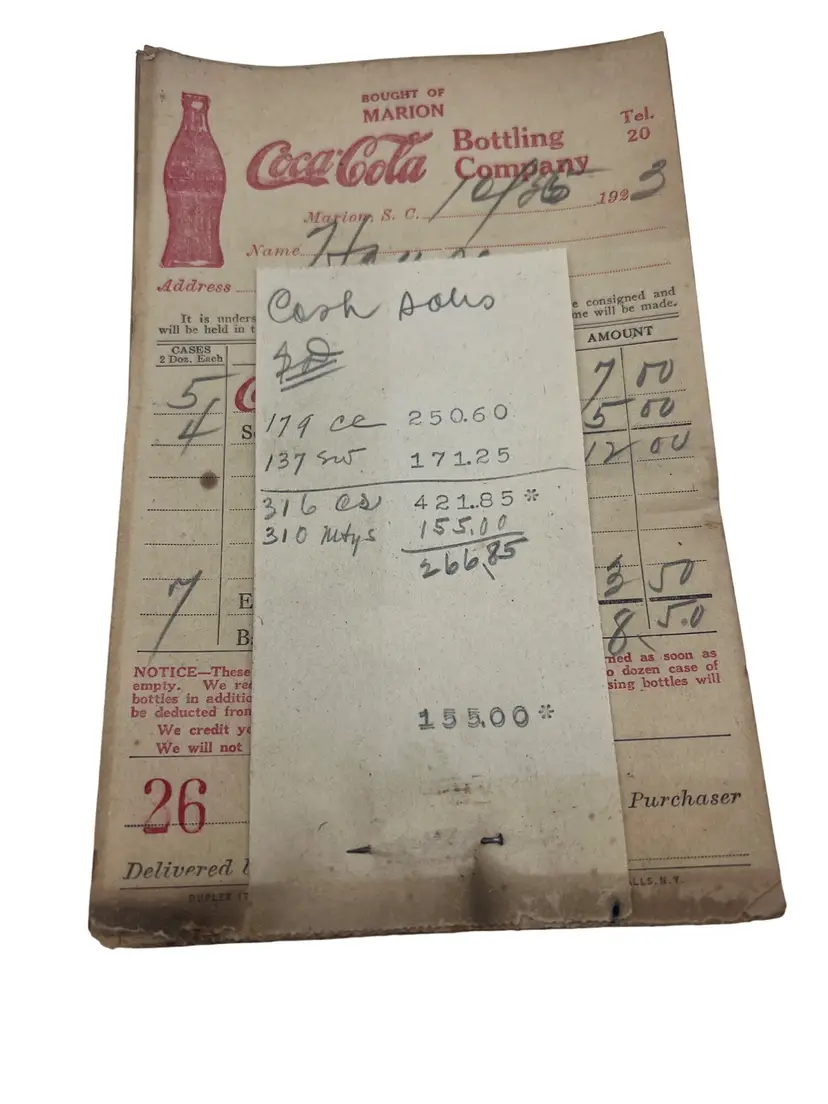 BOUGHT OF
MARION
Coca-Cola Bottling Company
Tel. 20
Marion, S. C. 10/26 1923
Name
Address
It is unders
will be held in t
e consigned and
me will be made.
CASES
2 Doz. Each
AMOUNT
5 C 7 00
4 S 5 00
12 00
7 E 3 50
B 8 5.0
Cash sales
179 cc 250.60
137 sw 171.25
316 cs 421.85 *
310 Mtys 155.00
266.85
155.00 *
NOTICE—These
empty. We re
bottles in additio
be deducted from
We credit y
We will not
ned as soon as
o dozen case of
sing bottles will
26
Purchaser
Delivered b
DUPLEX
LLS, N.Y.